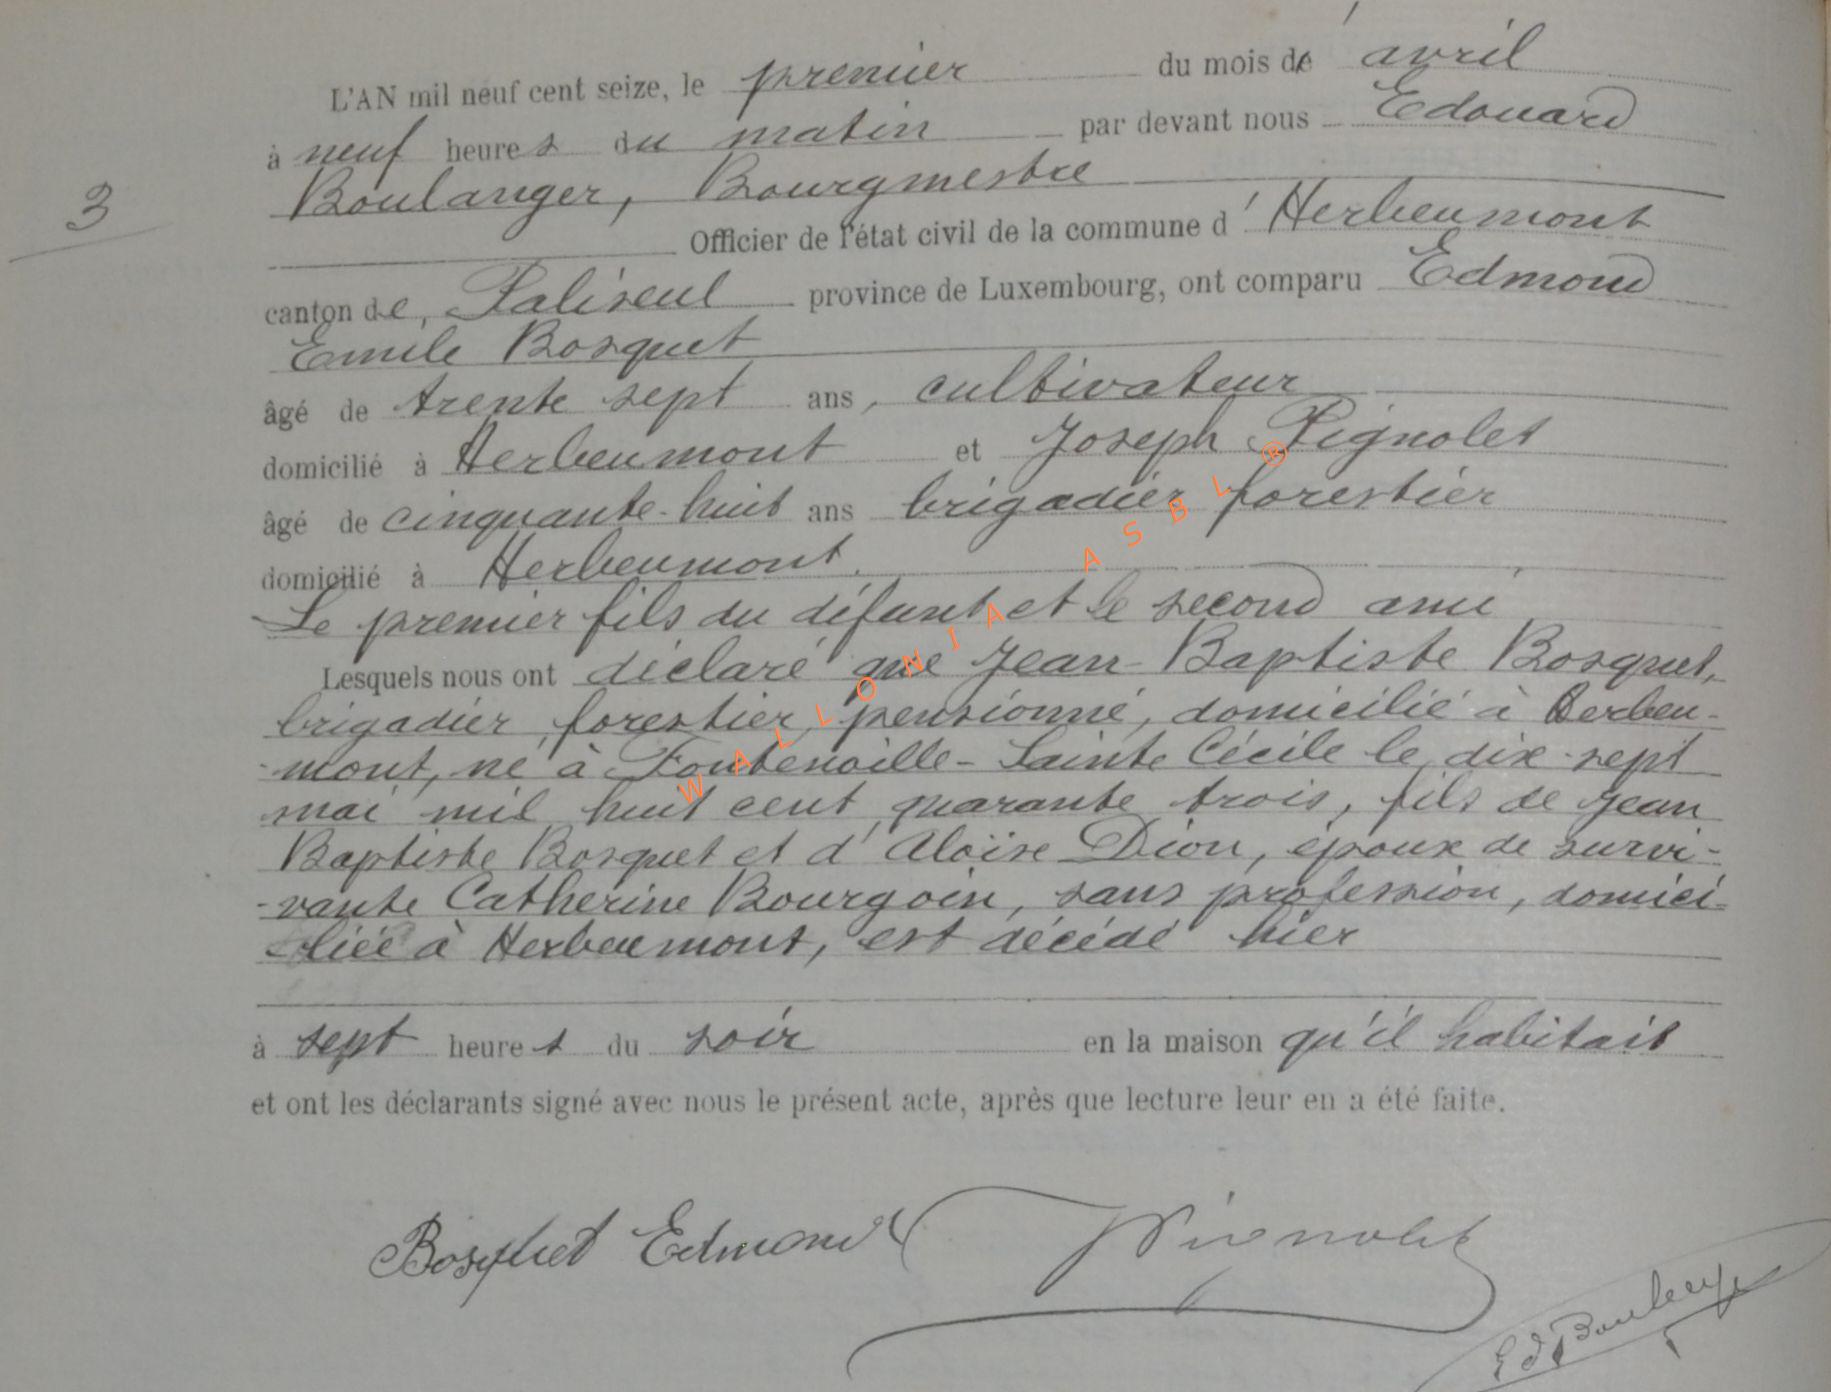 L'AN mil neuf cent seize, le premier du mois d' avril
à neuf heures du matin par devant nous Edouard
3
Boulanger, Bourgmestre
Officier de l'état civil de la commune d' Herbeumont
canton de Paliseul province de Luxembourg, ont comparu Edmond
Emile Bosquet
âgé de trente sept ans, cultivateur
domicilié à Herbeumont et Joseph Pignolet
âgé de cinquante-huit ans brigadier forestier
domicilié à Herbeumont.
Le premier fils du défunt et le second ami
Lesquels nous ont déclaré que Jean-Baptiste Bosquet,
brigadier forestier, pensionné, domicilié à Herbeu-
-mont, né à Fontenoille-Sainte Cécile le dix-sept
mai mil huit cent quarante trois, fils de Jean
Baptiste Bosquet et d'Aloïse Dion, époux de survi-
-vante Catherine Bourgoin, sans profession, domici-
-liée à Herbeumont, est décédé hier
à sept heures du soir en la maison qu'il habitait
et ont les déclarants signé avec nous le présent acte, après que lecture leur en a été faite.
Bosquet Edmond JPignolet
Ed Boulanger
WALLONIA ASBL ®